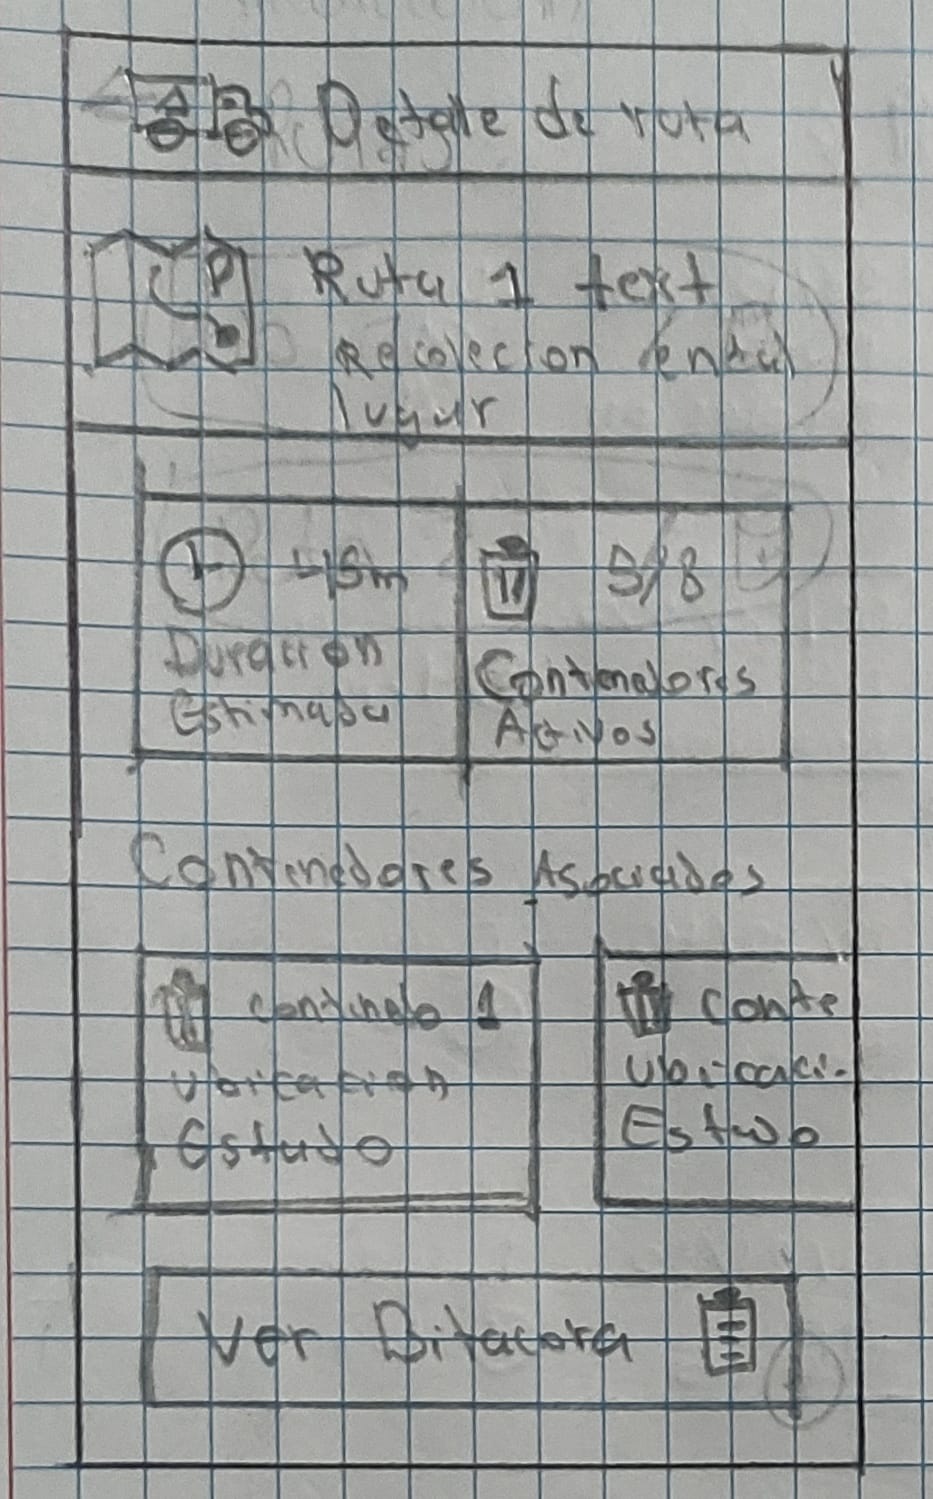 Detalle de ruta
Ruta 1 text
Recoleccion en tal
lugar
45m
5/8
Duracion
Estimada
Contenedores
Activos
Contenedores Asociados
contenedo 1
ubicacion
Estado
Conte
Ubicaci.
Estado
Ver Bitacora